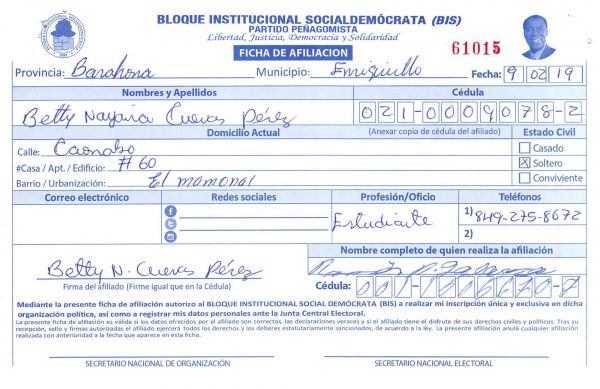 BLOQUE INSTITUCIONAL SOCIALDEMÓCRATA (BIS)
PARTIDO PEÑAGOMISTA
Libertad, Justicia, Democracia y Solidaridad
FICHA DE AFILIACION
61015
Provincia: Barahona Municipio: Enriquillo Fecha: 9 02 19
Nombres y Apellidos Cédula
Betty Nayaira Cuevas Pérez 021-0009078-2
Domicilio Actual (Anexar copia de cédula del afiliado) Estado Civil
Calle: Caonabo Casado
#Casa / Apt. / Edificio: #60 X Soltero
Barrio / Urbanización: El mamonal Conviviente
Correo electrónico Redes sociales Profesión/Oficio Teléfonos
Estudiante 1) 849-275-8672
2)
Nombre completo de quien realiza la afiliación
Betty N. Cuevas Pérez Ramón
Firma del afiliado (Firme igual que en la Cédula) Cédula: 001-1106670-7
Mediante la presente ficha de afiliación autorizo al BLOQUE INSTITUCIONAL SOCIAL DEMÓCRATA (BIS) a realizar mi inscripción única y exclusiva en dicha
organización política, así como a registrar mis datos personales ante la Junta Central Electoral.
La presente ficha de afiliación es válida si los datos ofrecidos por el afiliado son correctos, las declaraciones veraces y si el afiliado tiene el disfrute de sus derechos civiles y políticos. Tras su
recepción, sello y firmas autorizadas el afiliado ejercerá todos los derechos y los deberes estatutariamente sancionados, de acuerdo a la ley. La presente afiliación anula cualquier afiliación
realizada con anterioridad a la fecha que aparece en esta ficha.
SECRETARIO NACIONAL DE ORGANIZACIÓN SECRETARIO NACIONAL ELECTORAL